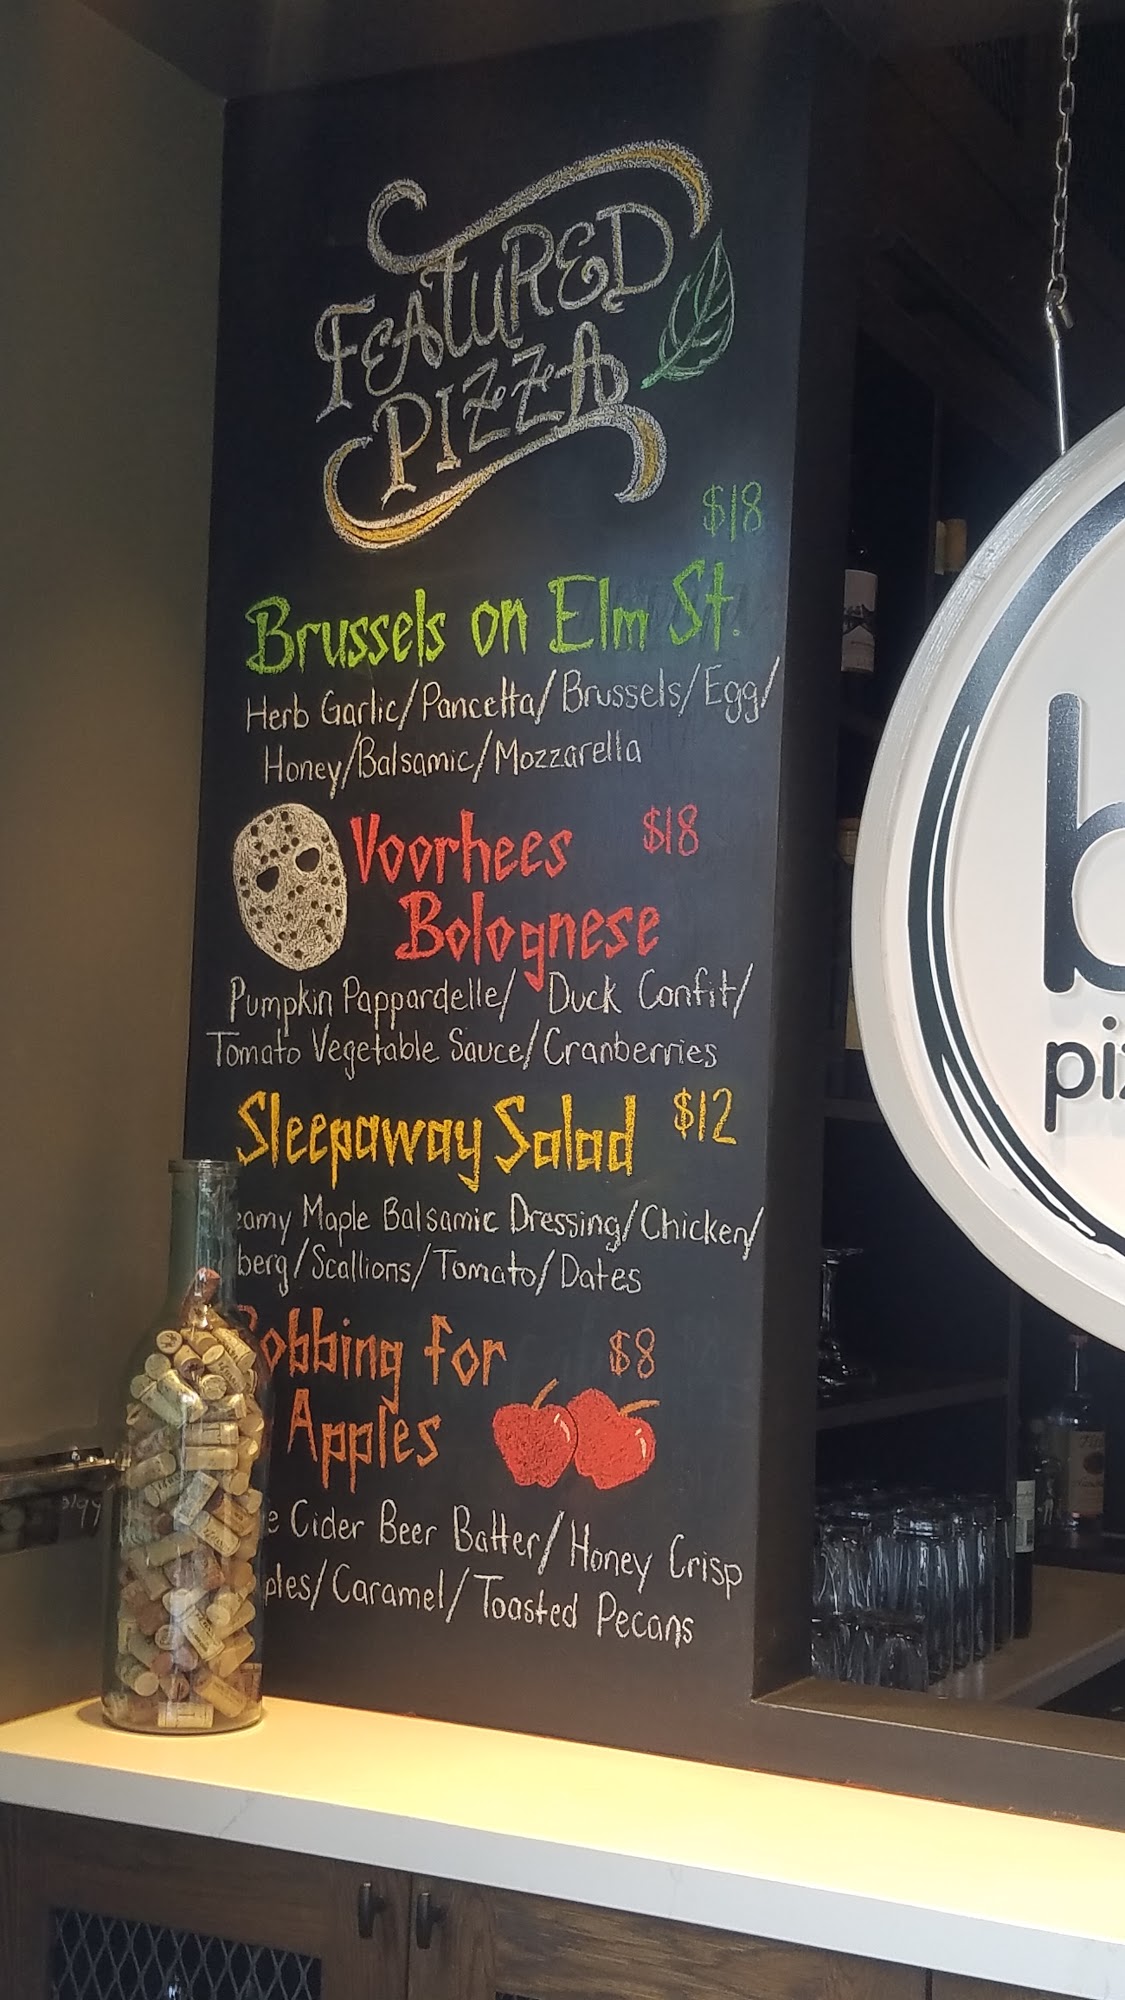 FEATURED
PIZZA
$18
Brussels on Elm St.
Herb Garlic/Pancetta/Brussels/Egg/
Honey/Balsamic/Mozzarella
Voorhees $18
Bolognese
Pumpkin Pappardelle/ Duck Confit/
Tomato Vegetable Sauce/Cranberries
Sleepaway Salad $12
eamy Maple Balsamic Dressing/Chicken/
berg/Scallions/Tomato/Dates
Bobbing for $8
Apples
e Cider Beer Batter/Honey Crisp
ples/Caramel/Toasted Pecans
b
piz